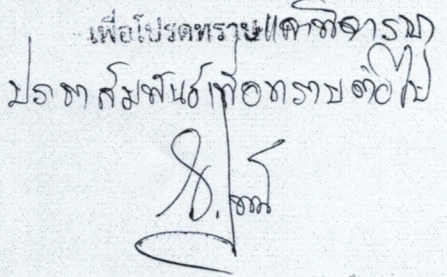 เพื่อโปรดทราบและพิจารณา
ประชาสัมพันธ์เพื่อทราบต่อไป